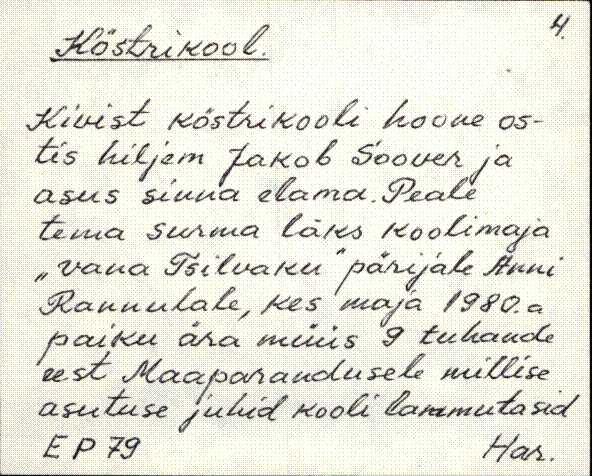 4.
Köstrikool.
Kivist köstrikooli hoone os-
tis hiljem Jakob Soover ja
asus sinna elama. Peale
tema surma läks koolimaja
„vana Tsilvaku" pärijale Anni
Rannulale, kes maja 1980.a
paiku ära müüs 9 tuhande
eest Maaparandusele millise
asutuse juhid kooli lammutasid
E P 79 Har.